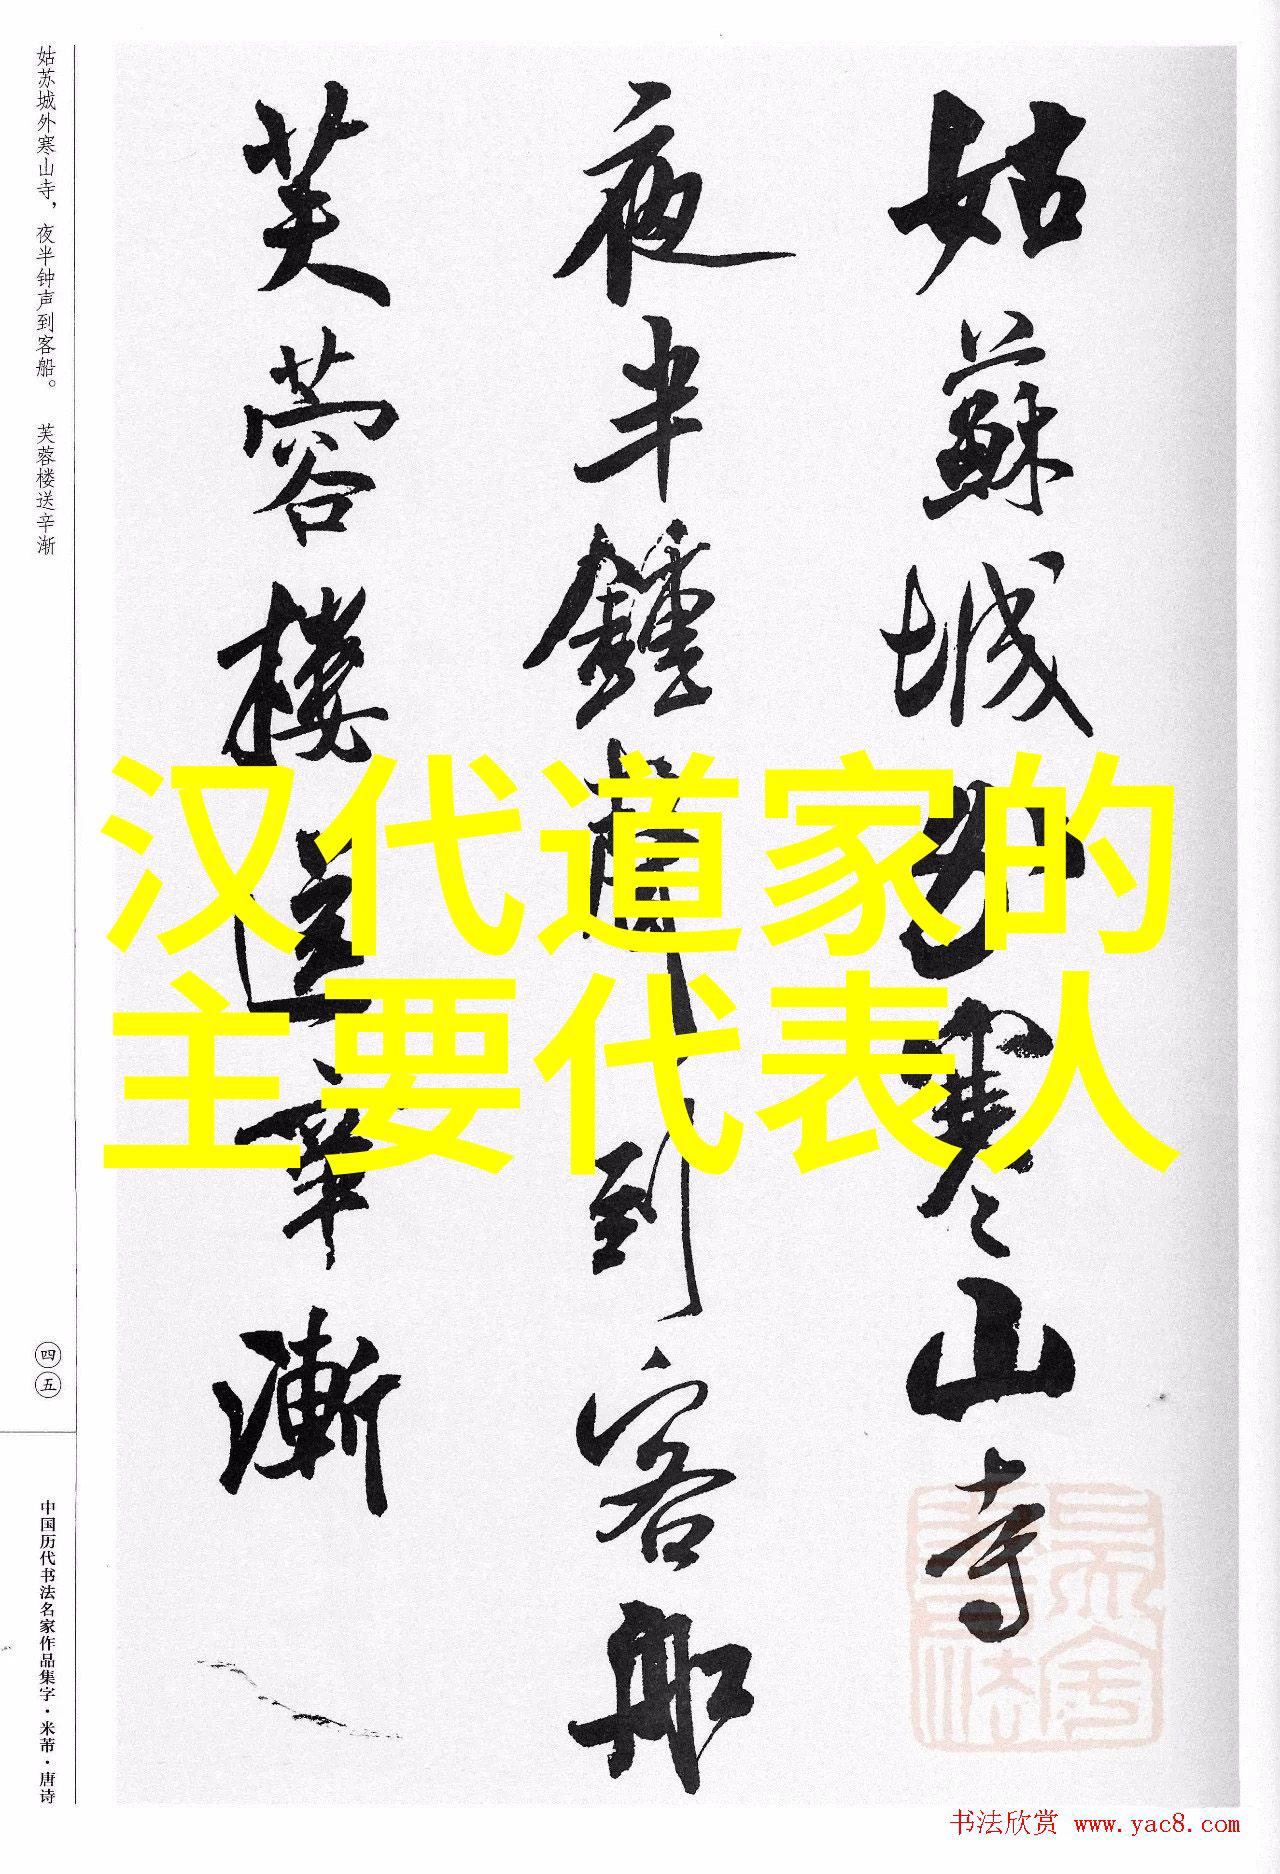 汉代道家的
主要代表人
姑蘇城外寒山寺
夜半鍾聲到客船
芙蓉樓送辛漸
姑苏城外寒山寺，夜半钟声到客船。 芙蓉楼送辛渐
四五
中国历代书法名家作品集字·米芾·唐诗
书法欣赏 www.yac8.com